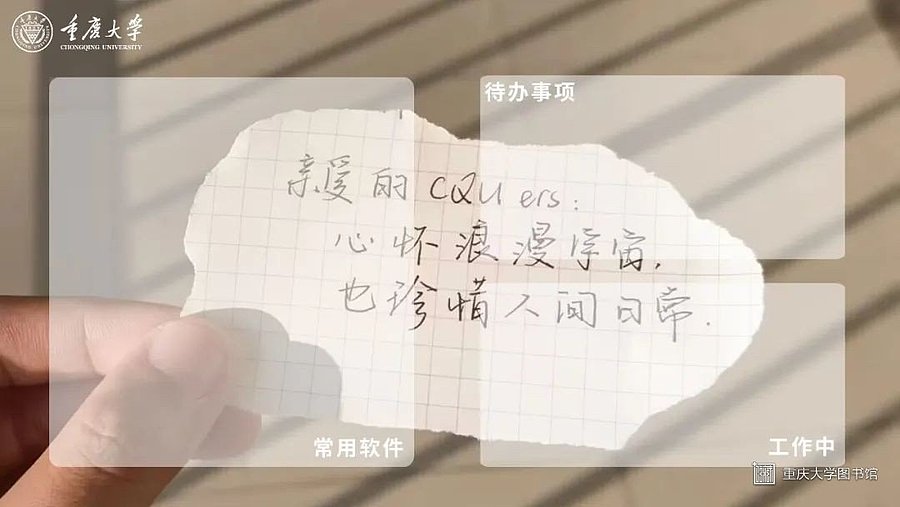 重庆大学
CHONGQING UNIVERSITY
待办事项
亲爱的 CQU ers:
心怀浪漫宇宙,
也珍惜人间日常.
常用软件
工作中
重庆大学图书馆